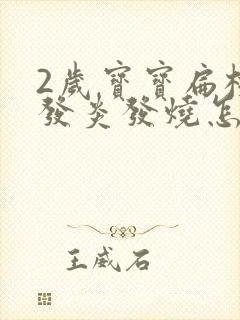 2歲寶寶扁桃
發炎發燒怎
王威石